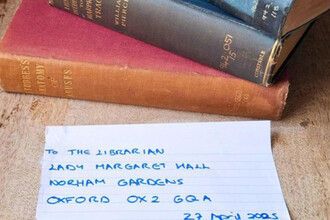 WILLIAM
PIERCE
ANATOMY
TO THE LIBRARIAN
LADY MARGARET HALL
NORHAM GARDENS
OXFORD OX2 6QA
27 April 2025